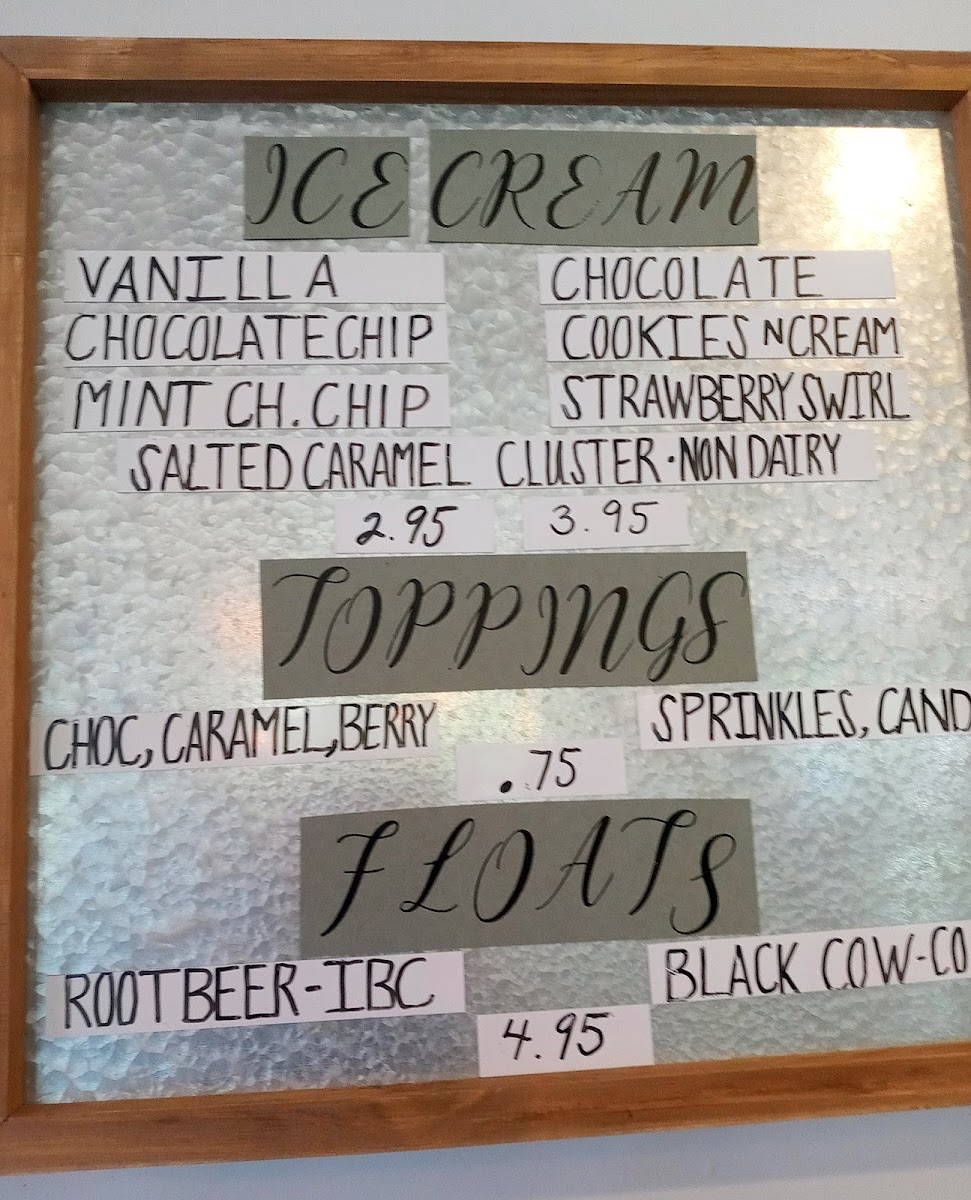 ICE CREAM
VANILLA CHOCOLATE
CHOCOLATE CHIP COOKIES N CREAM
MINT CH. CHIP STRAWBERRY SWIRL
SALTED CARAMEL CLUSTER·NON DAIRY
2.95 3.95
TOPPINGS
CHOC, CARAMEL, BERRY SPRINKLES, CAND
.75
FLOATS
ROOTBEER-IBC BLACK COW-CO
4.95